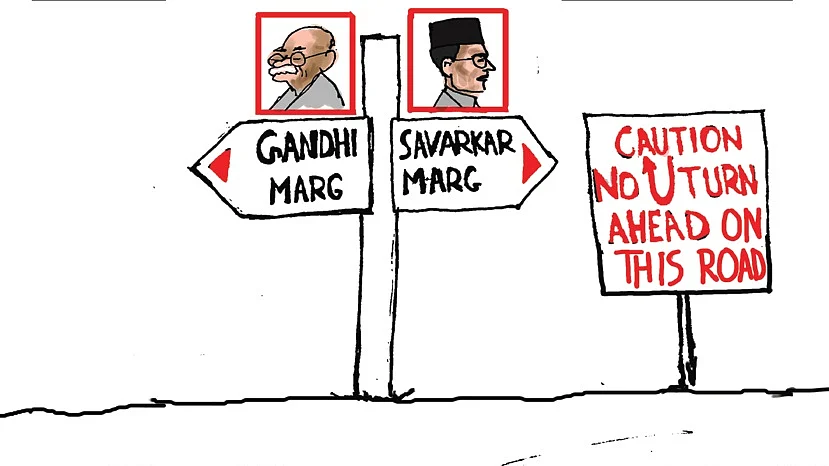 GANDHI
MARG
SAVARKAR
MARG
CAUTION
NO U TURN
AHEAD ON
THIS ROAD